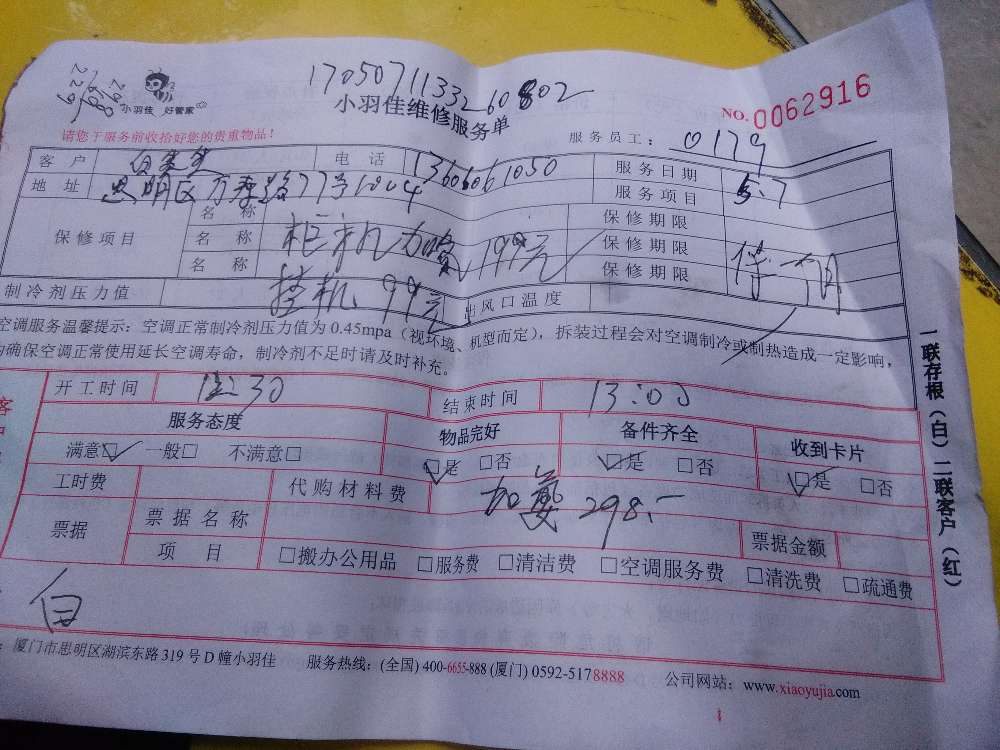 小羽佳 好管家
17050711332 60802
小羽佳维修服务单
NO. 0062916
请您于服务前收拾好您的贵重物品！
服务员工： 0179
客户 电话 13606061050 服务日期 5.7
地址 思明区万寿路77号1004 服务项目
保修项目 名称 保修期限
名称 柜机加 199元 保修期限
名称 挂机 99元 保修期限
制冷剂压力值 出风口温度
空调服务温馨提示：空调正常制冷剂压力值为 0.45mpa（视环境、机型而定），拆装过程会对空调制冷或制热造成一定影响，
为确保空调正常使用延长空调寿命，制冷剂不足时请及时补充。
开工时间 12:30 结束时间 13:00
服务态度 物品完好 备件齐全 收到卡片
满意☑ 一般□ 不满意□ ☑是 □否 ☑是 □否 ☑是 □否
工时费 代购材料费 加 298.-
票据 票据名称 票据金额
项目 □搬办公用品 □服务费 □清洁费 □空调服务费 □清洗费 □疏通费
白
：厦门市思明区湖滨东路 319 号 D 幢小羽佳 服务热线：(全国) 400-6655-888 (厦门) 0592-5178888 公司网站：www.xiaoyujia.com
一联存根（白）二联客户（红）